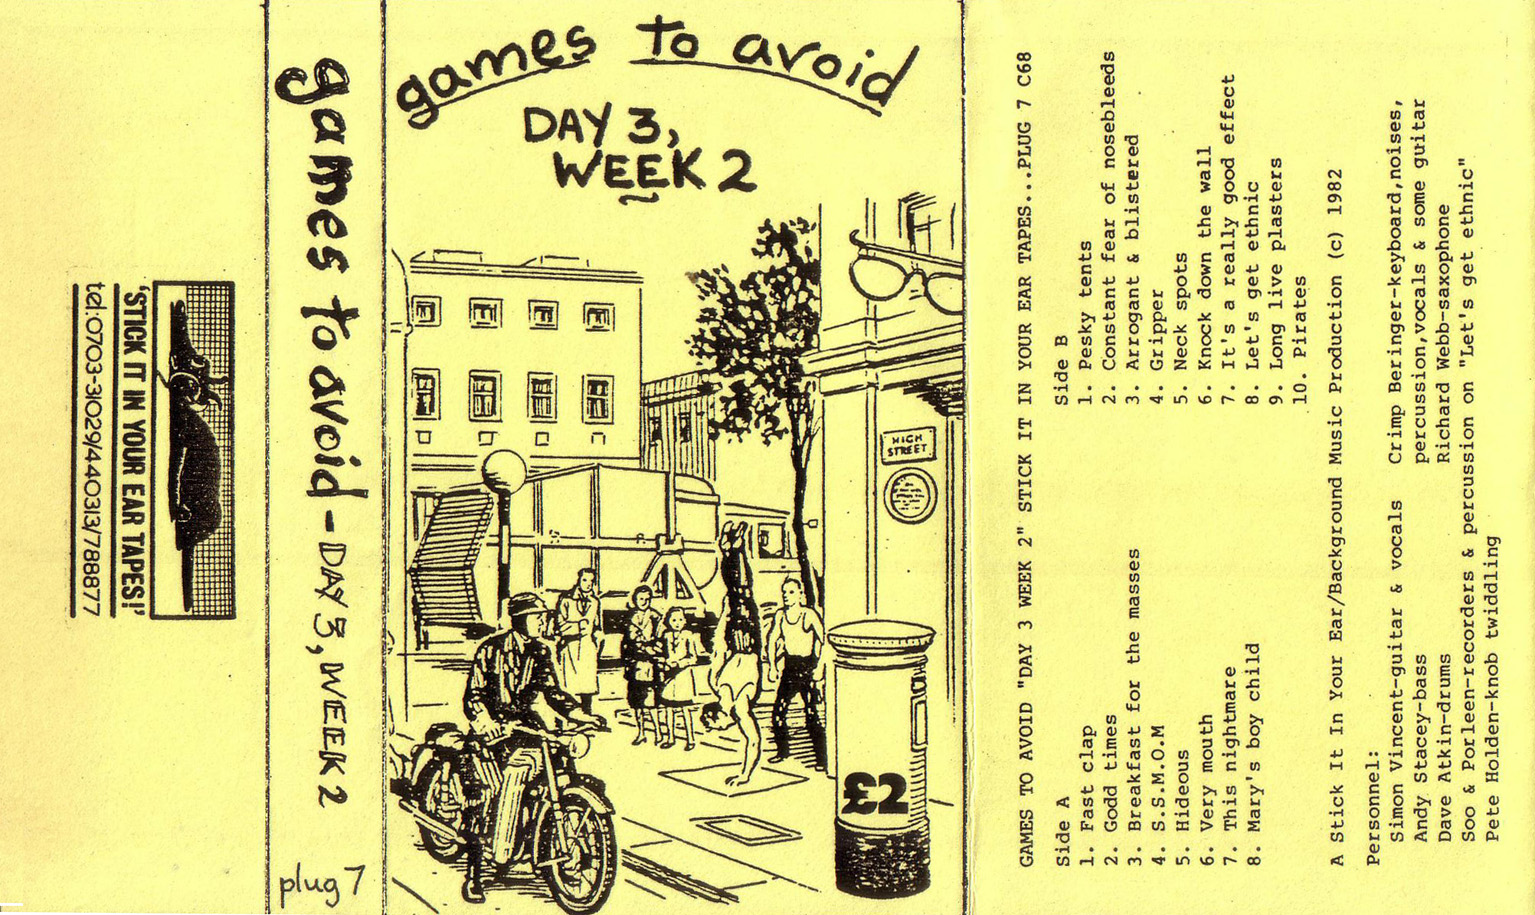 'STICK IT IN YOUR EAR TAPES!'
tel:0703-31029/440313/788877
games to avoid - DAY 3, WEEK 2
plug 7
games to avoid
DAY 3,
WEEK 2
HIGH
STREET
£2
GAMES TO AVOID "DAY 3 WEEK 2" STICK IT IN YOUR EAR TAPES...PLUG 7 C68
Side A
1. Fast clap
2. Godd times
3. Breakfast for the masses
4. S.S.M.O.M
5. Hideous
6. Very mouth
7. This nightmare
8. Mary's boy child
Side B
1. Pesky tents
2. Constant fear of nosebleeds
3. Arrogant & blistered
4. Gripper
5. Neck spots
6. Knock down the wall
7. It's a really good effect
8. Let's get ethnic
9. Long live plasters
10. Pirates
A Stick It In Your Ear/Background Music Production (c) 1982
Personnel:
Simon Vincent-guitar & vocals
Andy Stacey-bass
Dave Atkin-drums
Crimp Beringer-keyboard,noises,
percussion,vocals & some guitar
Richard Webb-saxophone
Soo & Porleen-recorders & percussion on "Let's get ethnic"
Pete Holden-knob twiddling